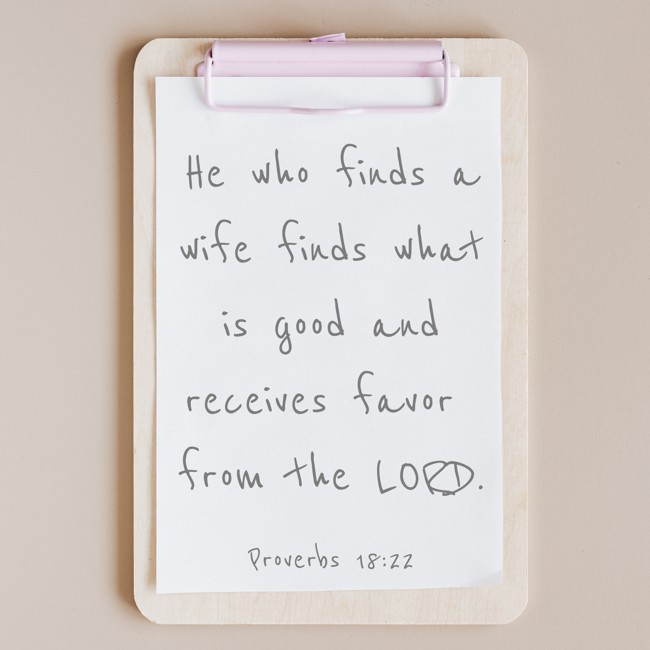 He who finds a
wife finds what
is good and
receives favor
from the LORD.
Proverbs 18:22